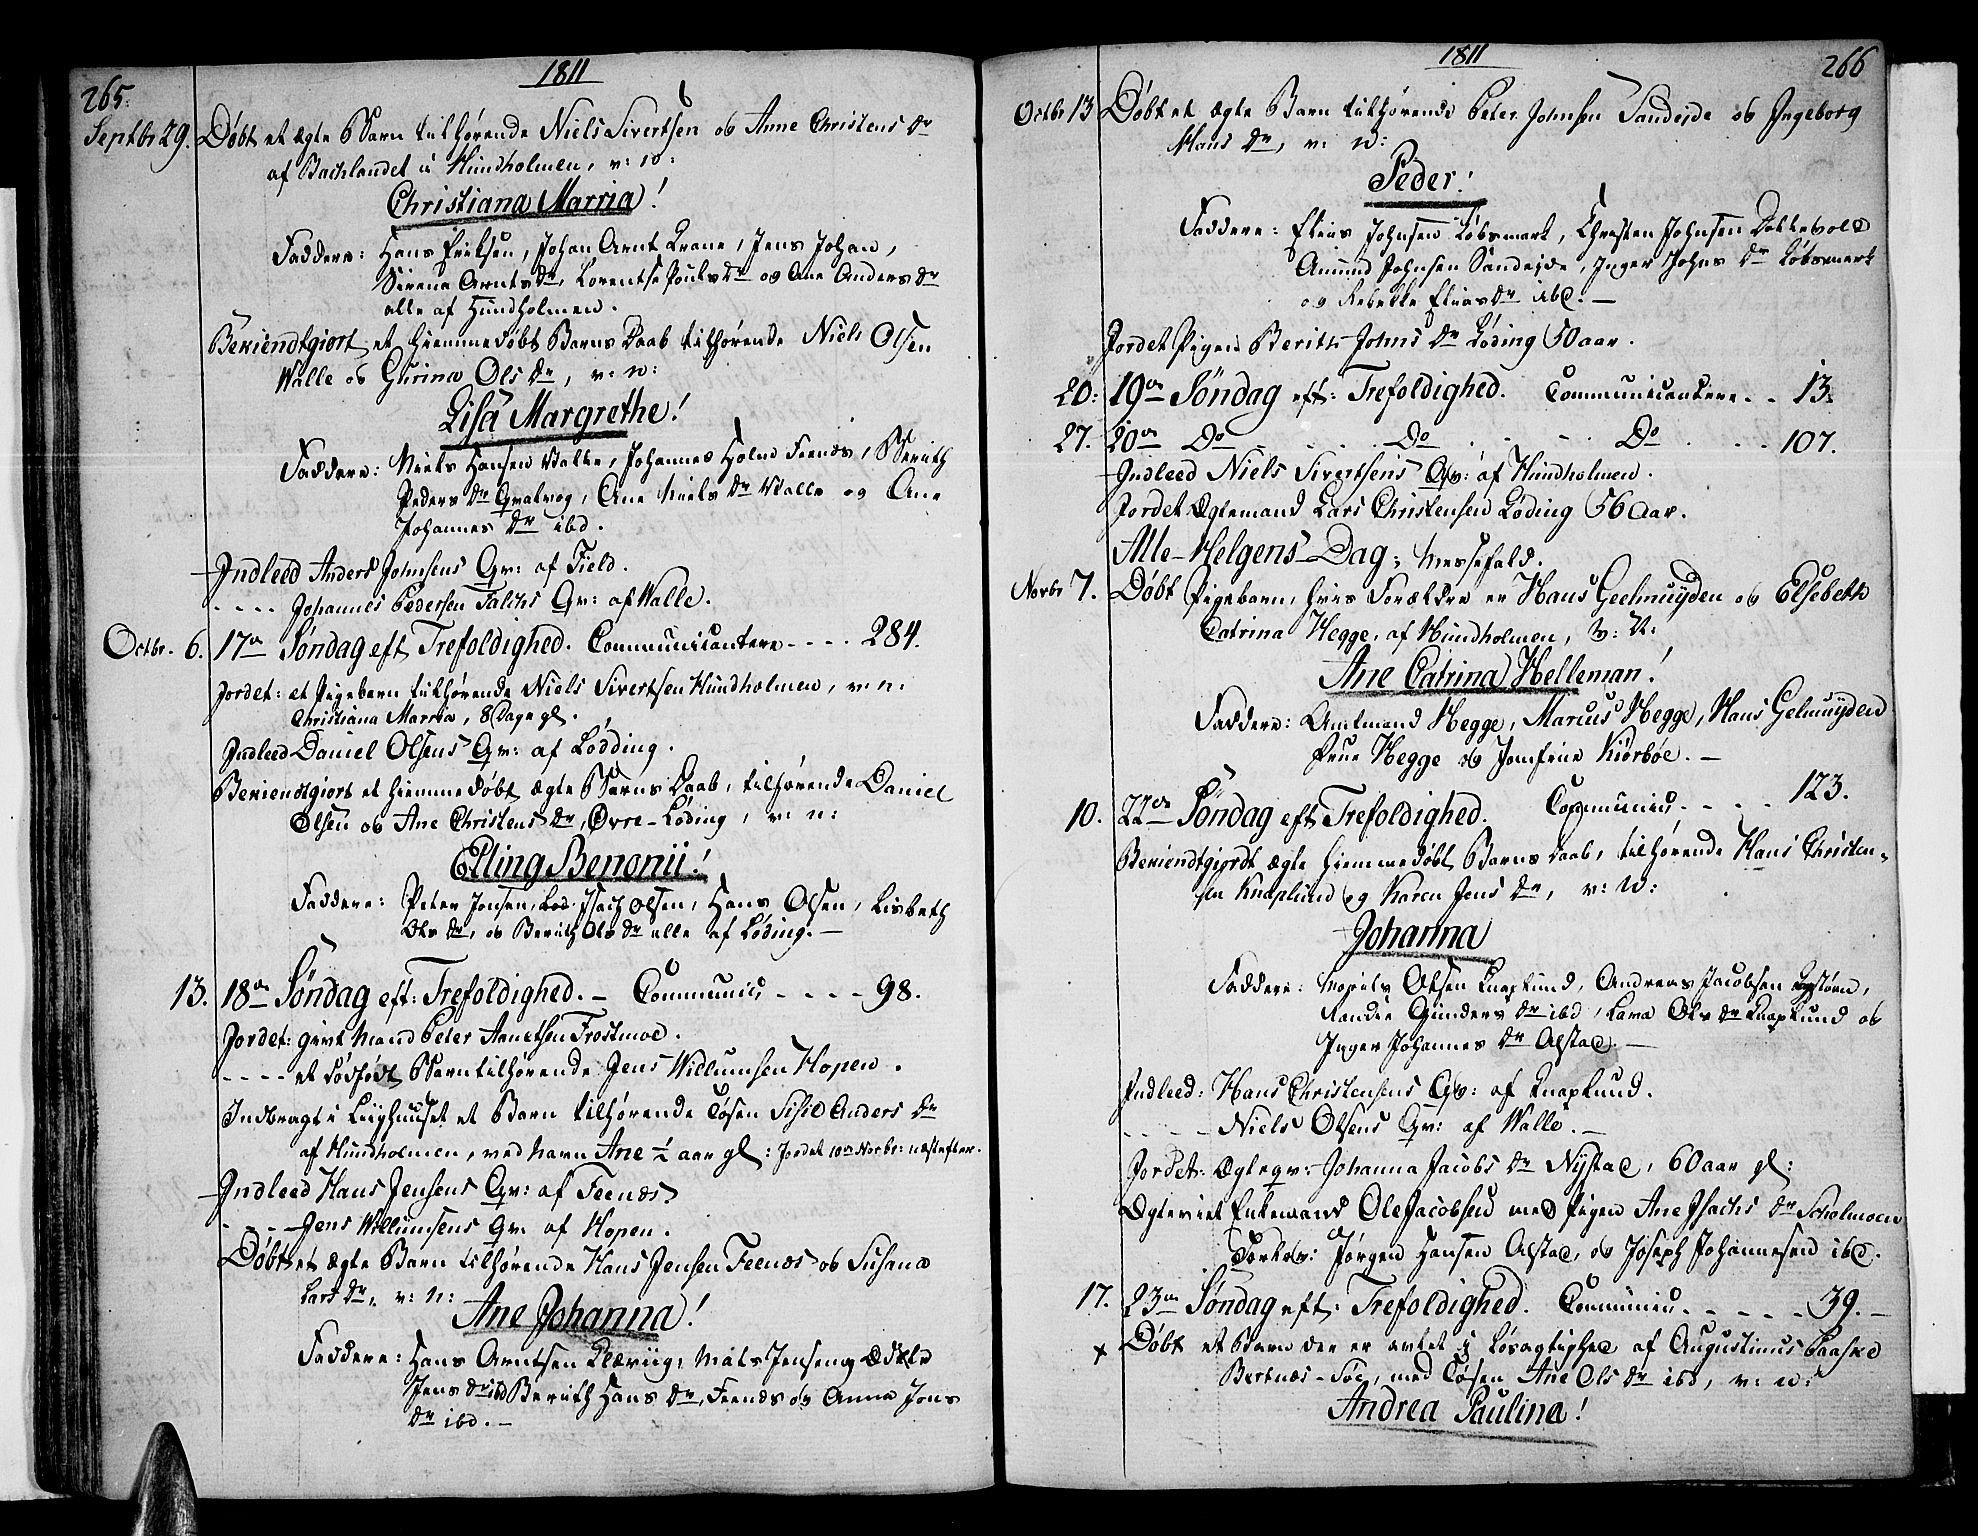 265.
1811
Septbr 29. Døbt et ægte Barn tilhørende Niels Sivertsen og Anne Christens dr
af Bachlandet i Hundholmen, v: n:
Christiana Marria!
Faddere: Hans Eriksen, Johan Arnt Krane, Jens Johan,
Sirena Arnts dr, Lorentse Pouls dr og Ane Anders dr
alle af Hundholmen.
Bekiendtgiort et hiemmedøbt Barns Daab tilhørende Niels Olsen
Walle og Gurina Ols dr, v: n:
Lisa Margrethe!
Faddere: Niels Hansen Valle, Johannes Holm Feenes, Berith
Peders dr Qvalvog, Ane Niels dr Valle og Ane
Johannes dr ibd.
Indleed Anders Johnsens Qv: af Field.
- - - - Johannes Pedersen Falchs Qv: af Walle.
Octbr. 6. 17de Søndag eft Trefoldighed. Communicantere - - - - 284.
Jordet: et Pigebarn tilhørende Niels Sivertsen Hundholmen, v: n:
Christiana Marria, 8 Dage gl.
Indleed Daniel Olsens Qv: af Lødding.
Bekiendtgiort et hiemmedøbt ægte Barns Daab, tilhørende Daniel
Olsen og Ane Christens dr, Øvre-Løding, v: n:
Elling Benonii!
Faddere: Peter Jonsen, Lød. Isach Olsen, Hans Olsen, Lisbeth
Ols dr, og Berith Ols dr alle af Løding. -
13. 18de Søndag eft: Trefoldighed. - Communic - - - - 98.
Jordet: givt Mand Peter Arnetsen Frostmoe.
- - - - et dødfødt Barn tilhørende Jens Willumsen Hopen.
Indbragt i Liighuuset et Barn tilhørende Tøsen Sisie Anders dr
af Hundholmen, ved Navn Ane ½ aar gl: Jordet 10de Norbr: næstefter.
Indleed Hans Jensens Qv: af Feenes.
- - - - Jens Willumsens Qv: af Hopen.
Døbt et ægte Barn tilhørende Hans Jensen Feenes og Susana
Lars dr, v: n:
Ane Johanna!
Faddere: Hans Arntsen, Mats Jensen og
Jens dr ibd Berith Hans dr, Feenes og Anna Jons
dr ibd. -
1811
266
Octbr 13 Døbt et ægte Barn tilhørende Peter Johnsen Sandeide og Ingeborg
Hans dr, v: n:
Peder!
Faddere: Elias Johnsen Løbsmark, Christen Johnsen
Amund Johnsen Sandeide, Inger Johns dr Løbsmark
og Rebekke Elias dr ibd. -
Jordet Pigen Berith Johns dr Løding 50 aar.
20: 19de Søndag eft: Trefoldighed. Communicantere - - 13.
27. 20de Do - - - Do - - - Do - - - 107.
Indleed Niels Sivertsens Qv: af Hundholmen.
Jordet Ægtemand Lars Christensen Løding 56 aar.
Alle-Helgens-Dag; Messefald.
Norbr 7. Døbt Pigebarn, hvis Forældre er Hans Geelmuyden og Elsebeth
Catrina Hegge, af Hundholmen, v: n:
Ane Catrina Helleman!
Faddere: Amtmand Hegge, Marcus Hegge, Hans Gelmuyden
Frue Hegge og Jomfrue Kiørbøe. -
10. 22de Søndag eft Trefoldighed. Communic. - - - - 123.
Bekiendtgiordt ægte hiemmedøbt Barns Daab, tilhørende Hans Christen-
sen Knaplund og Karen Jens dr, v: n:
Johanna
Faddere: Olsen Knaplund, Andreas Jacobsen,
Gunders dr ibd, Lava Ols dr Knaplund og
Inger Johannes dr Alstad. -
Indleed: Hans Christensens Qv: af Knaplund.
- - - - Niels Olsens Qv: af Walle. -
Jordet: Ægteqv: Johanna Jacobs dr Nystad, 60 aar gl:
Ægteviet Enkemand Ole Jacobsen med Pigen Ane Isachs dr Soholmoen
Forlov: Jørgen Hansen Alstad, og Joseph Johannesen ibd.
17. 23de Søndag eft: Trefoldighed. Communic. - - - - 39. -
x Døbt et Barn der er avlet i Løsagtighed af Augustinus Paaske
Bertnes-, med Tøsen Ane Ols dr ibd, v: n:
Andrea Paulina!